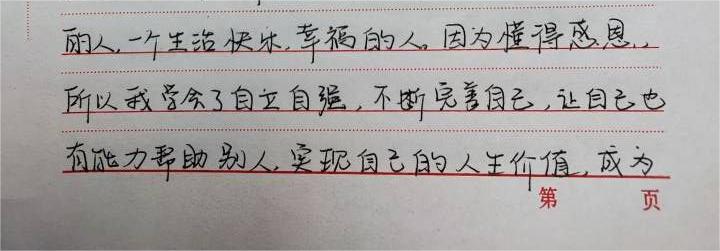 的人,一个生活快乐,幸福的人。因为懂得感恩,
所以我学会了自立自强,不断完善自己,让自己也
有能力帮助别人,实现自己的人生价值,成为
第 页